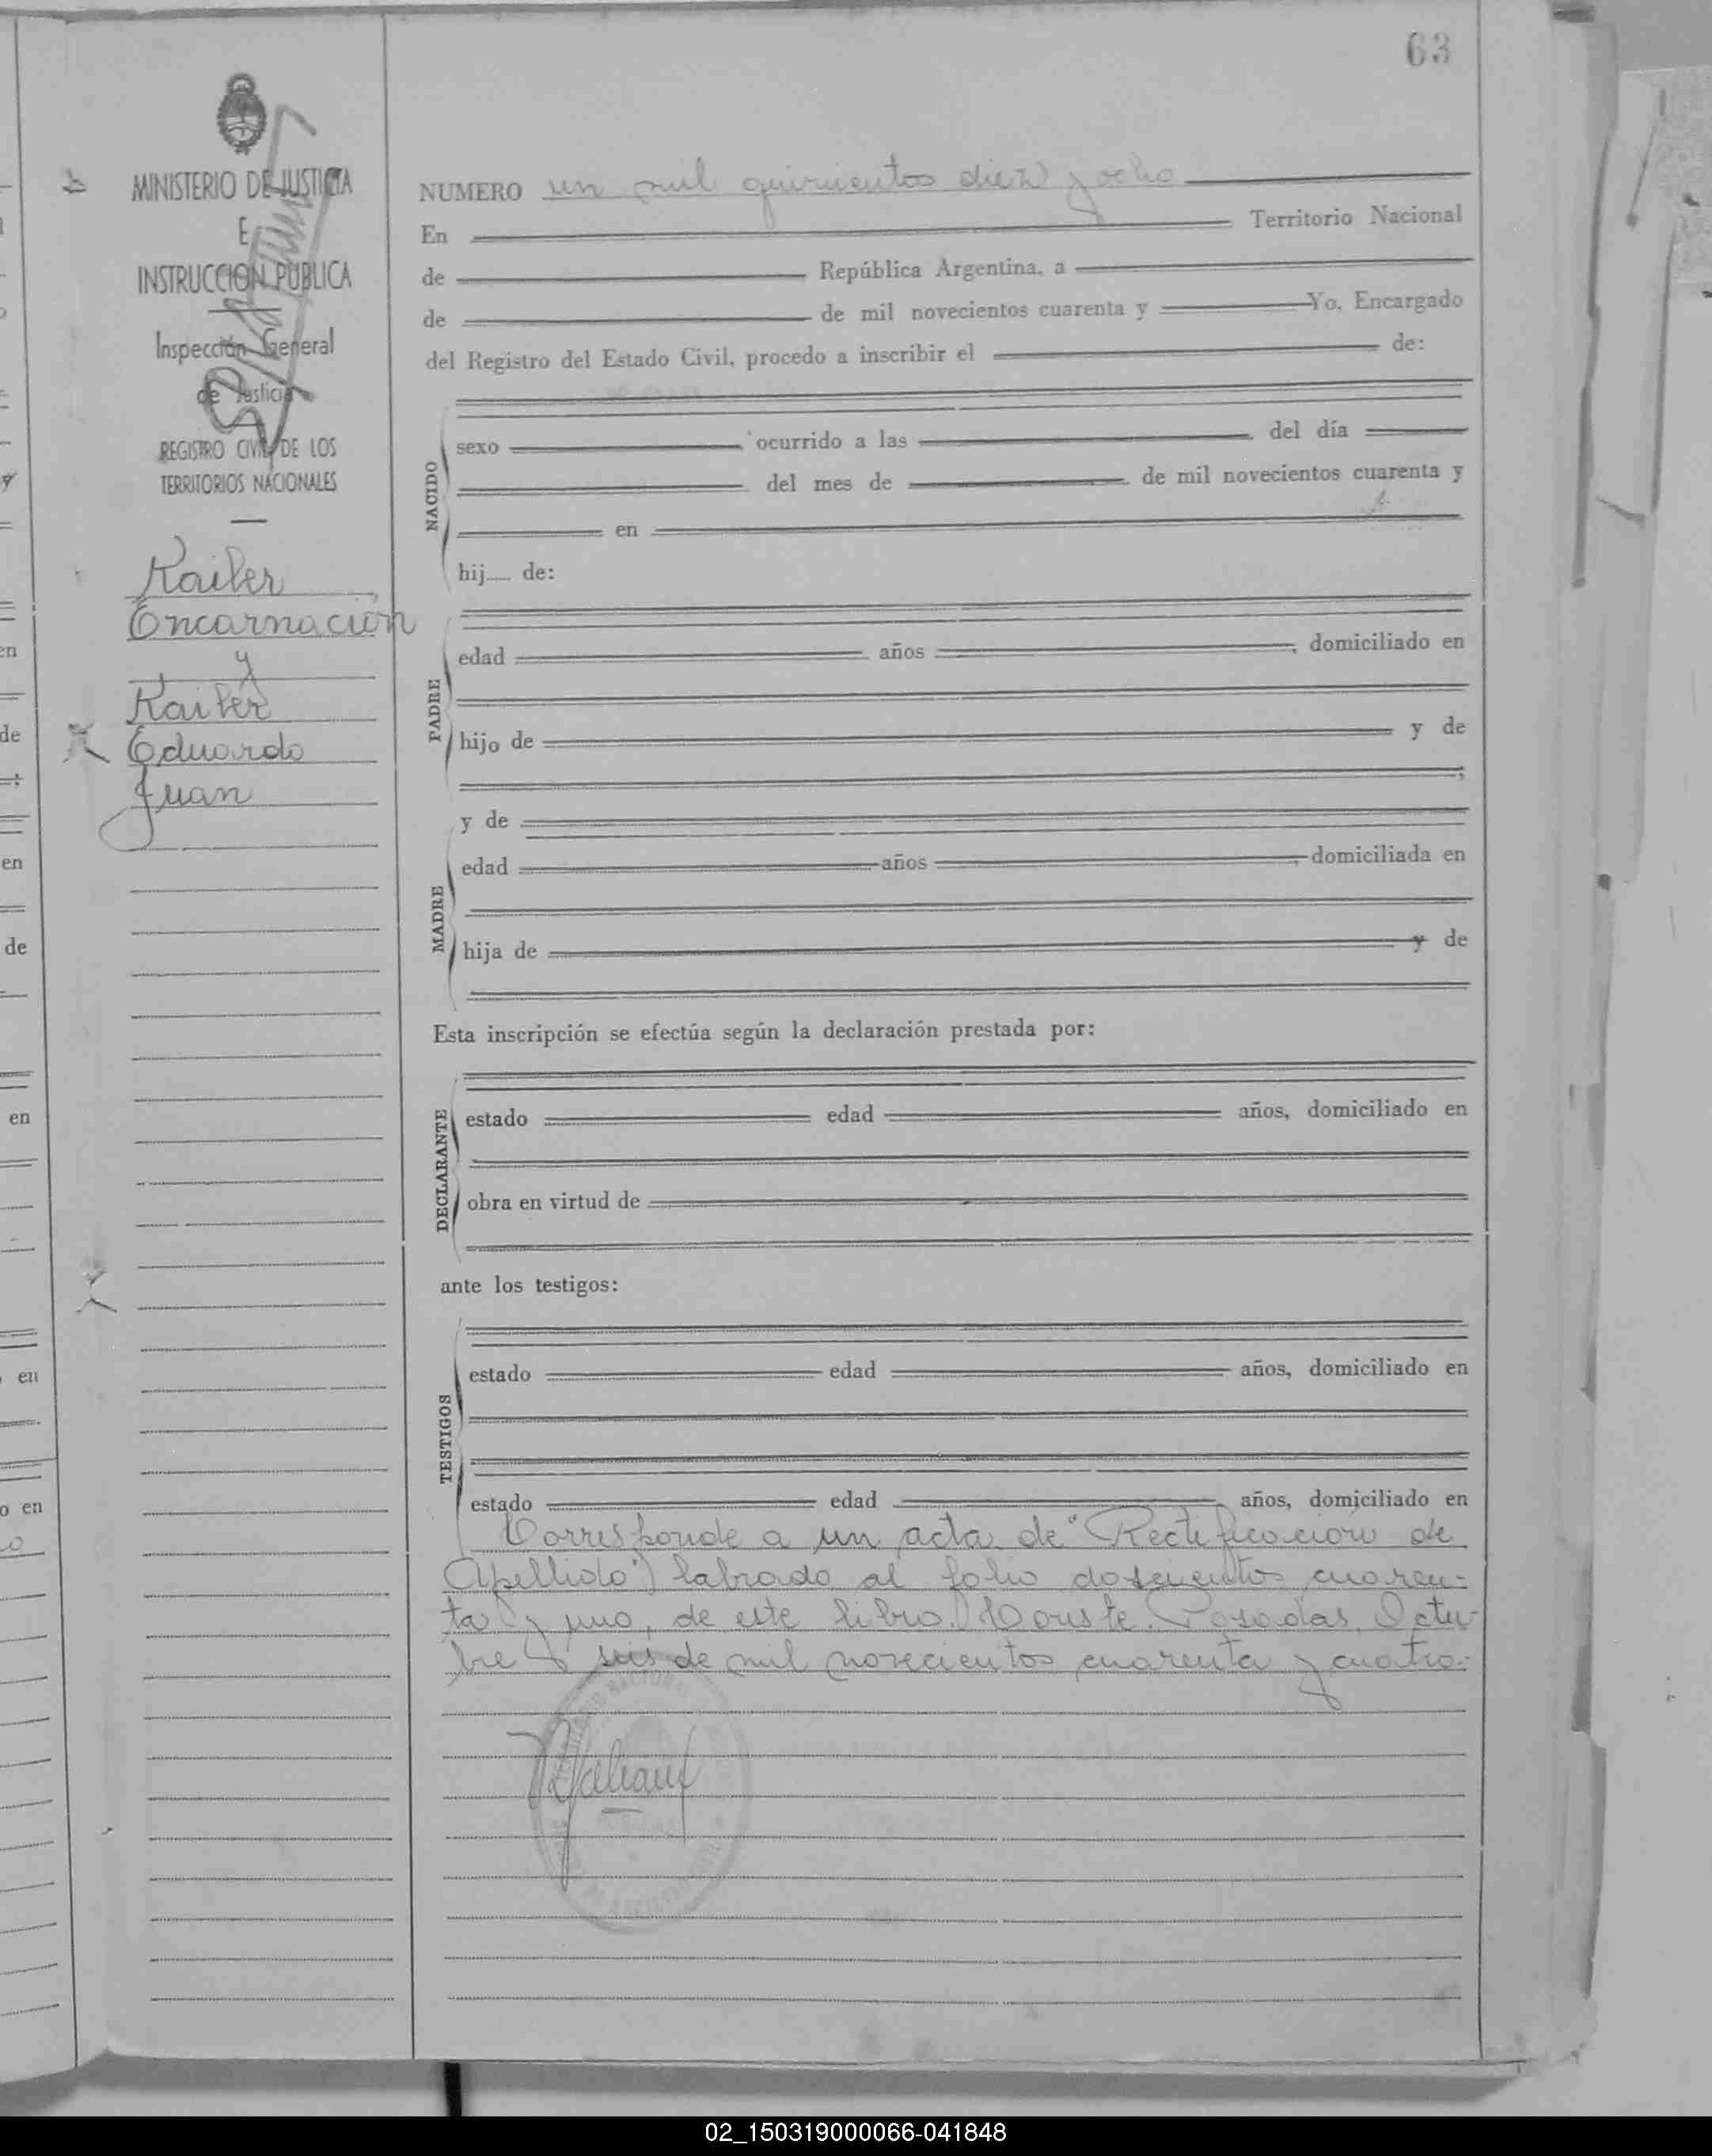 63
MINISTERIO DE JUSTICIA
E
INSTRUCCION PUBLICA
Inspección General
de Justicia
REGISTRO CIVIL DE LOS
TERRITORIOS NACIONALES
Kaiser
Encarnación
y
Kaiser
Eduardo
Juan
NUMERO un mil quinientos diez y ocho
En Territorio Nacional
de República Argentina, a
de de mil novecientos cuarenta y Yo, Encargado
del Registro del Estado Civil, procedo a inscribir el de:
NACIDO
sexo ocurrido a las del día
del mes de de mil novecientos cuarenta y
en
hij de:
PADRE
edad años , domiciliado en
hijo de y de
;
y de
MADRE
edad años , domiciliada en
hija de y de
Esta inscripción se efectúa según la declaración prestada por:
DECLARANTE
estado edad años, domiciliado en
obra en virtud de
ante los testigos:
TESTIGOS
estado edad años, domiciliado en
estado edad años, domiciliado en
Corresponde a un acta de "Rectificación de
Apellido" labrado al folio doscientos cuaren-
ta y uno, de este libro. Conste. Posadas, Octu-
bre seis de mil novecientos cuarenta y cuatro.-
en
de
en
de
en
en
o en
02_150319000066-041848